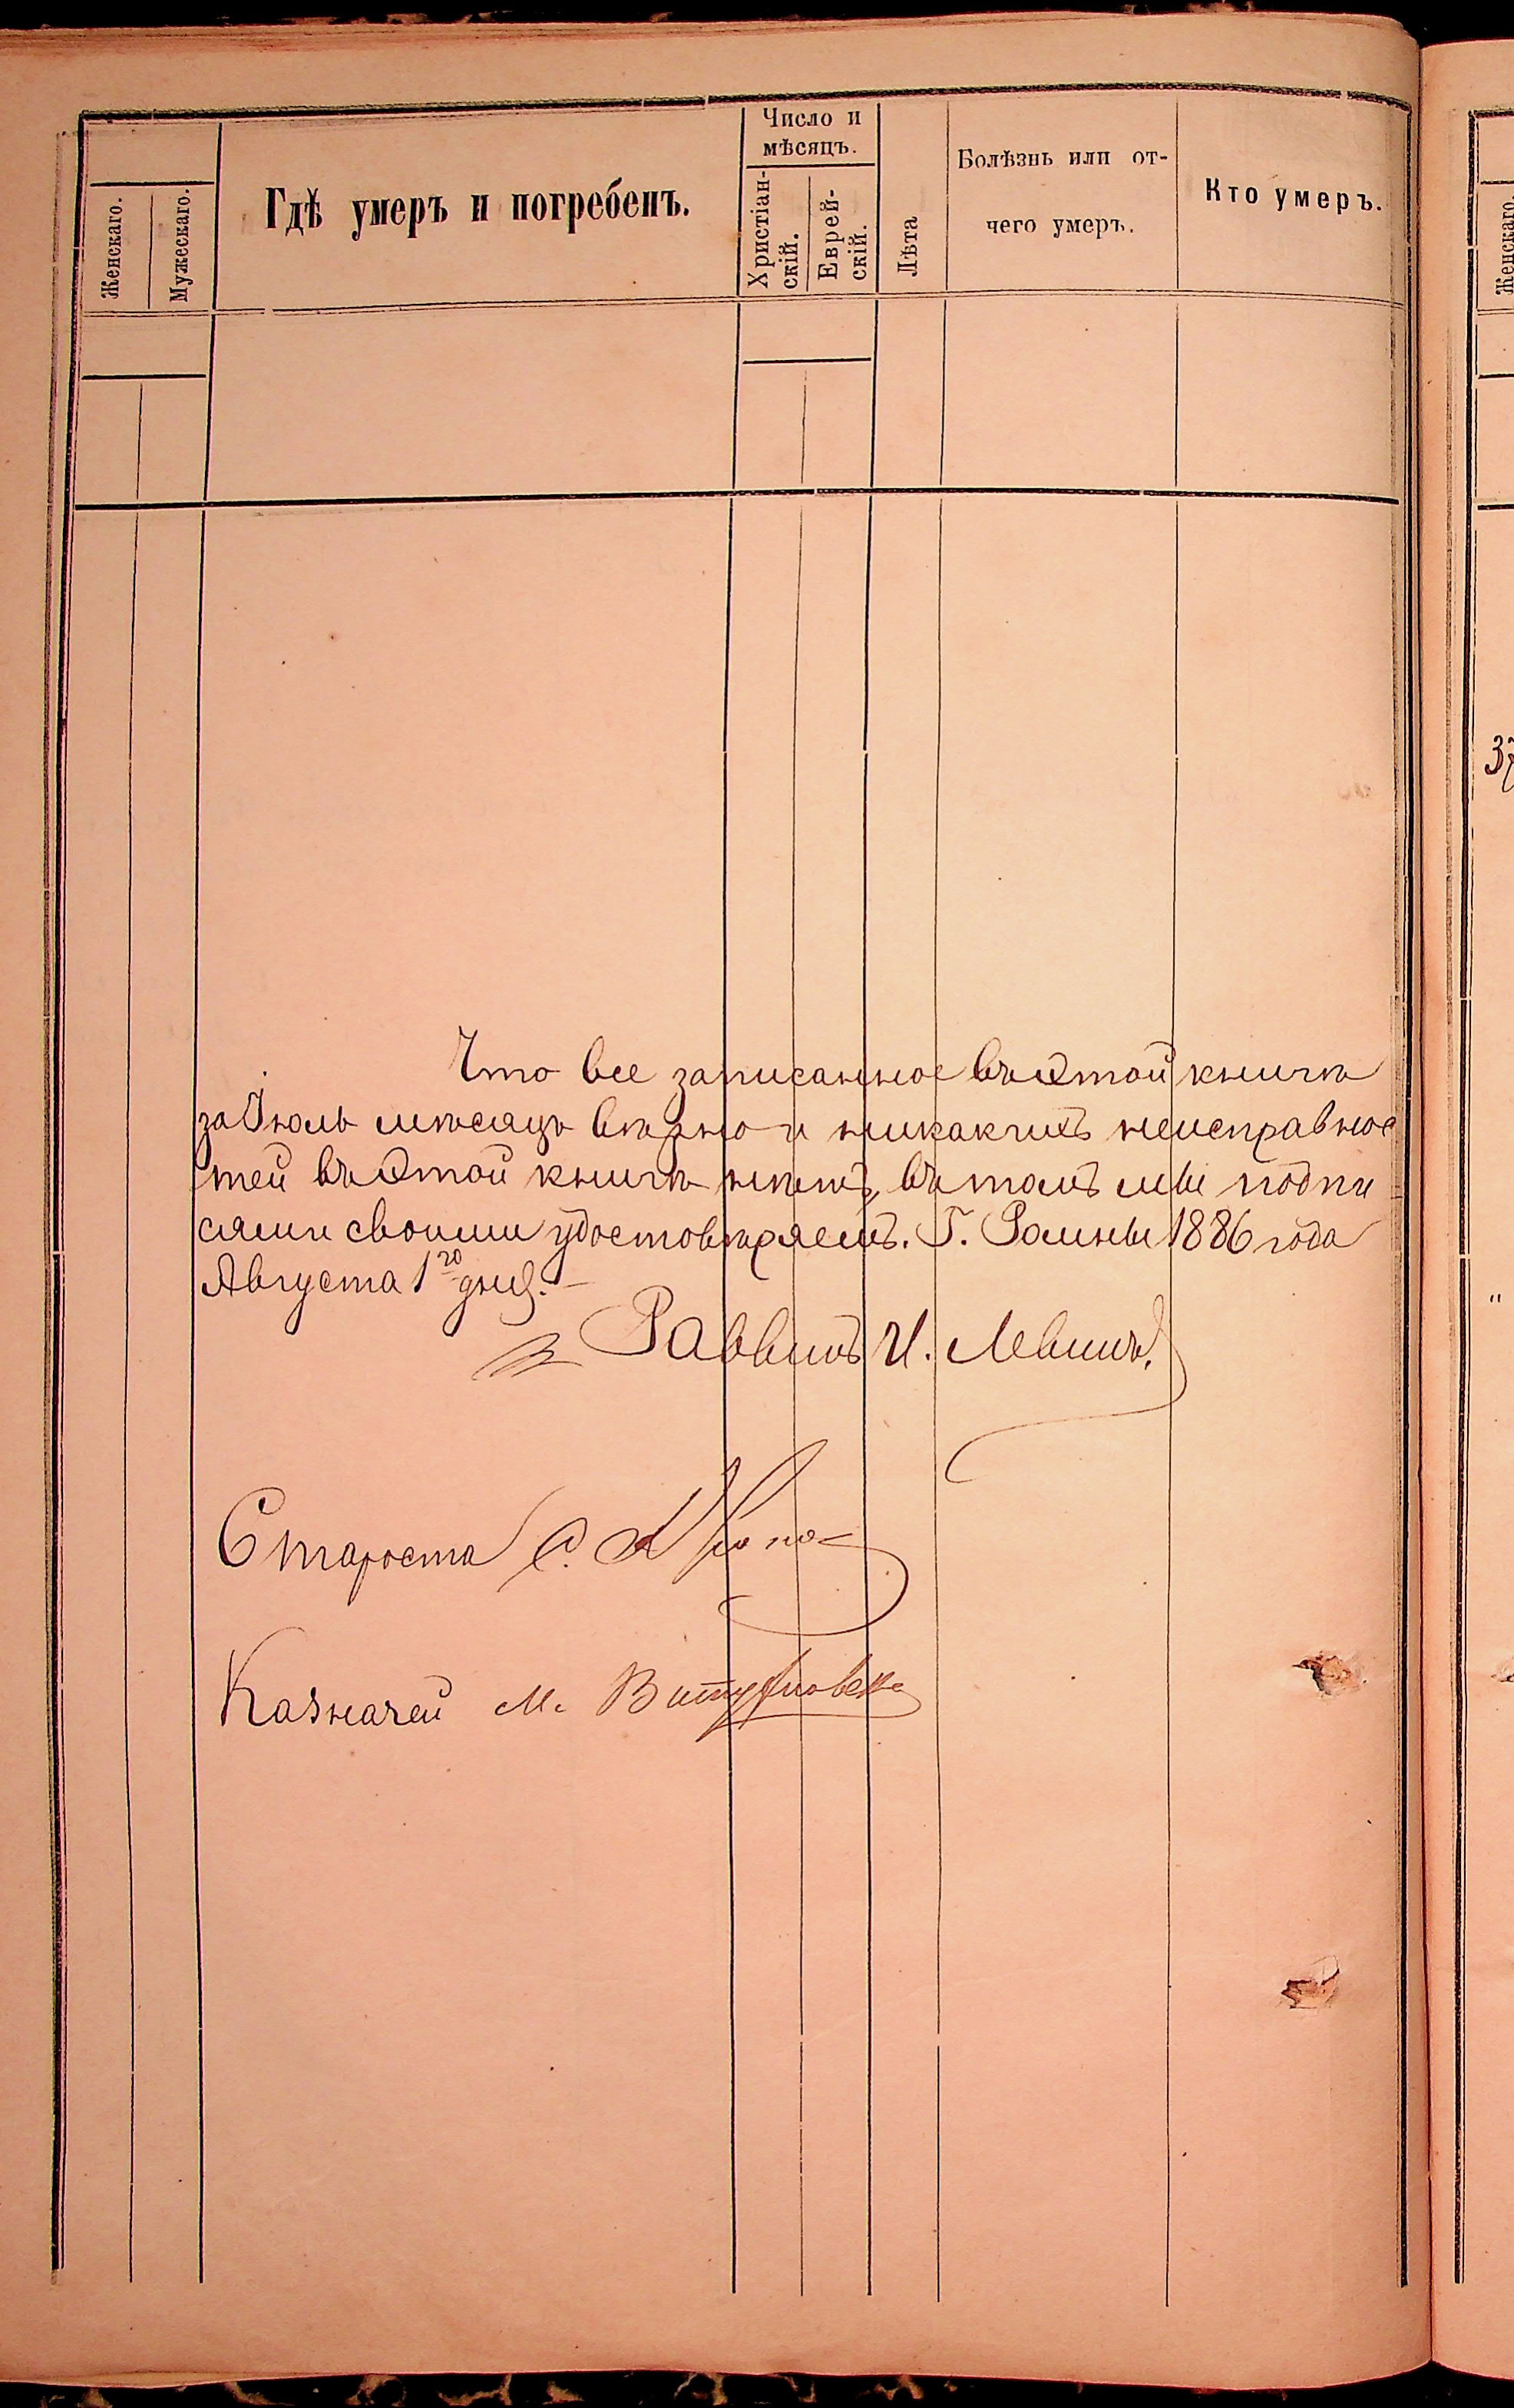 Женскаго.
Мужескаго.
Гдѣ умеръ и погребенъ.
Число и
мѣсяцъ.
Христіан-
скій.
Еврей-
скій.
Лѣта
Болѣзнь или от-
чего умеръ.
Кто умеръ.
Женскаго.
37
Что все записанное въ этой книгѣ
за Іюль мѣсяцъ вѣрно и никакихъ неисправнос
тей въ этой книгѣ нѣтъ, въ томъ мы подпи
сями своими удостовѣряемъ. Г. Ромны 1886 года
Августа 1го дня.
Раввинъ И. Левинъ.
Староста С.
Казначей М.